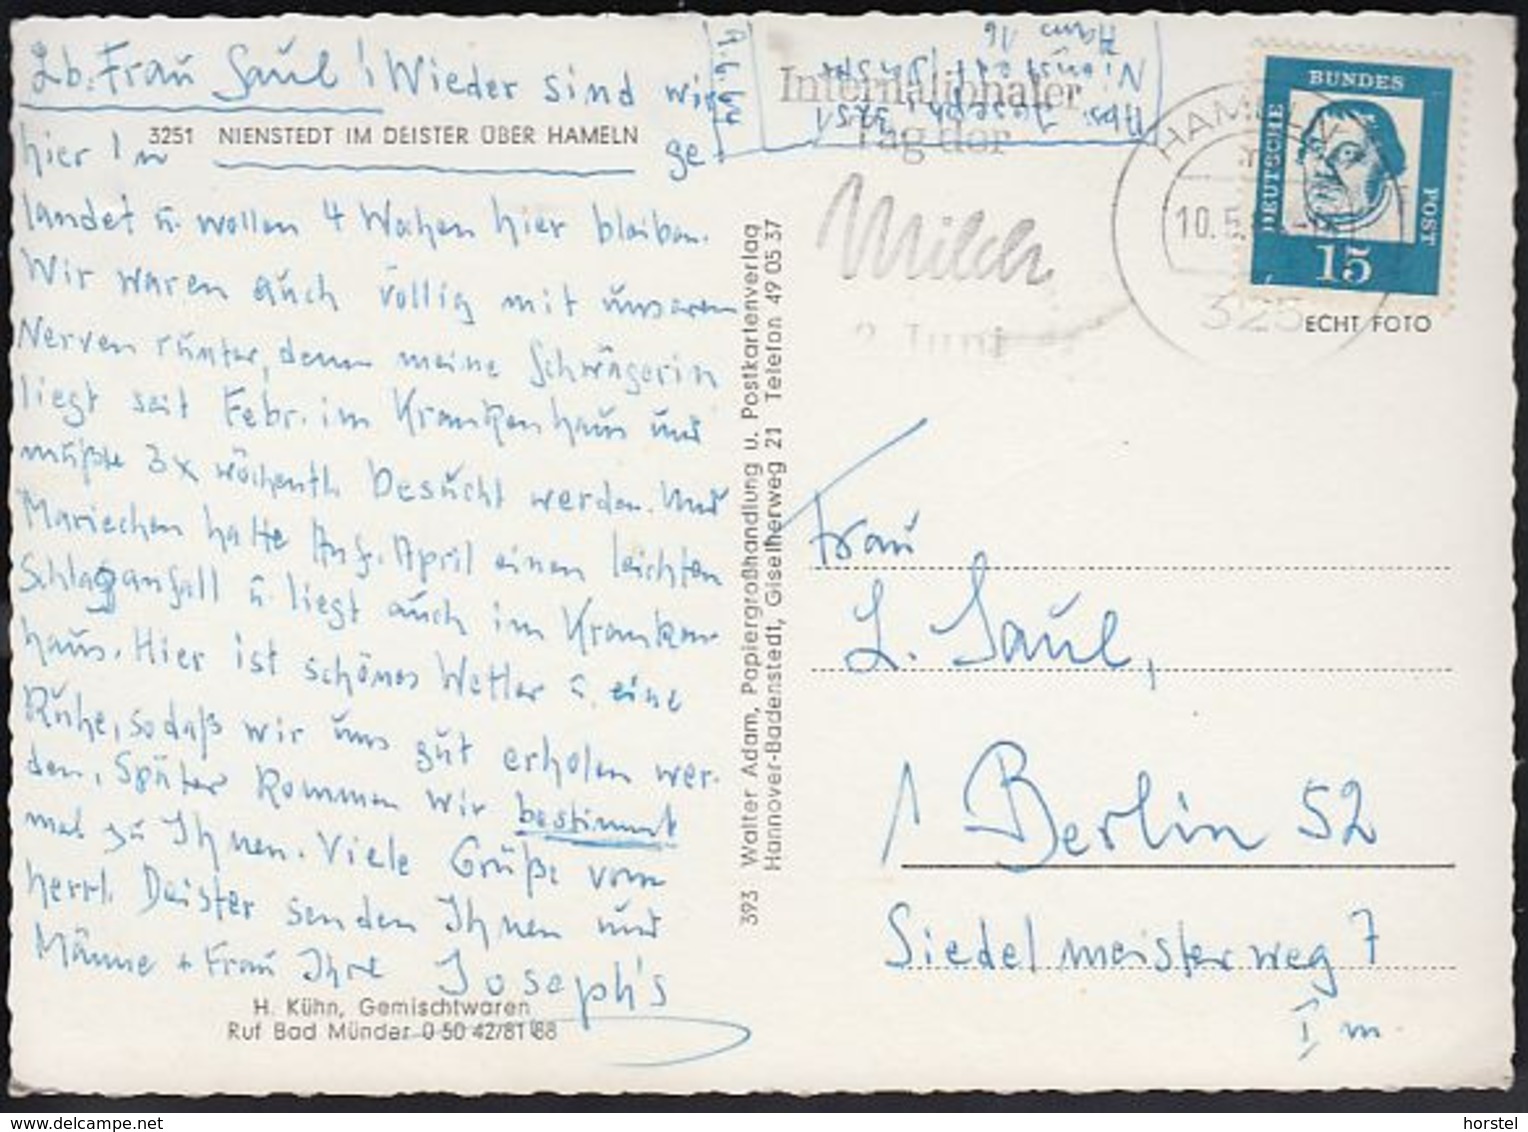 Lb. Frau Saul! Wieder sind wir
3251 NIENSTEDT IM DEISTER ÜBER HAMELN
hier in ge-
landet u. wollen 4 Wochen hier bleiben.
Wir waren auch völlig mit unseren
Nerven runter, denn meine Schwägerin
liegt seit Febr. im Krankenhaus und
mußte 3x wöchentl. besucht werden. Und
Mariechen hatte Anf. April einen leichten
Schlaganfall u. liegt auch im Kranken-
haus. Hier ist schönes Wetter u. eine
Ruhe, sodaß wir uns gut erholen wer-
den. Später kommen wir bestimmt
mal zu Ihnen. Viele Grüße vom
herrl. Deister senden Ihnen und
Männe + Frau Ihre Joseph's
H. Kühn, Gemischtwaren
Ruf Bad Münder 0 50 42/81 88
393 Walter Adam, Papiergroßhandlung u. Postkartenverlag
Hannover-Badenstedt, Giselherweg 21 Telefon 49 05 37
Abs. Joseph, 3251
Nienstedt/Deister
Haus 16
Internationaler
Tag der
Milch
2. Juni
HAMELN
10.5.
325
DEUTSCHE BUNDESPOST
15
ECHT FOTO
Frau
L. Saul,
1 Berlin 52
Siedelmeisterweg 7
I m
horstel
www.delcampe.net